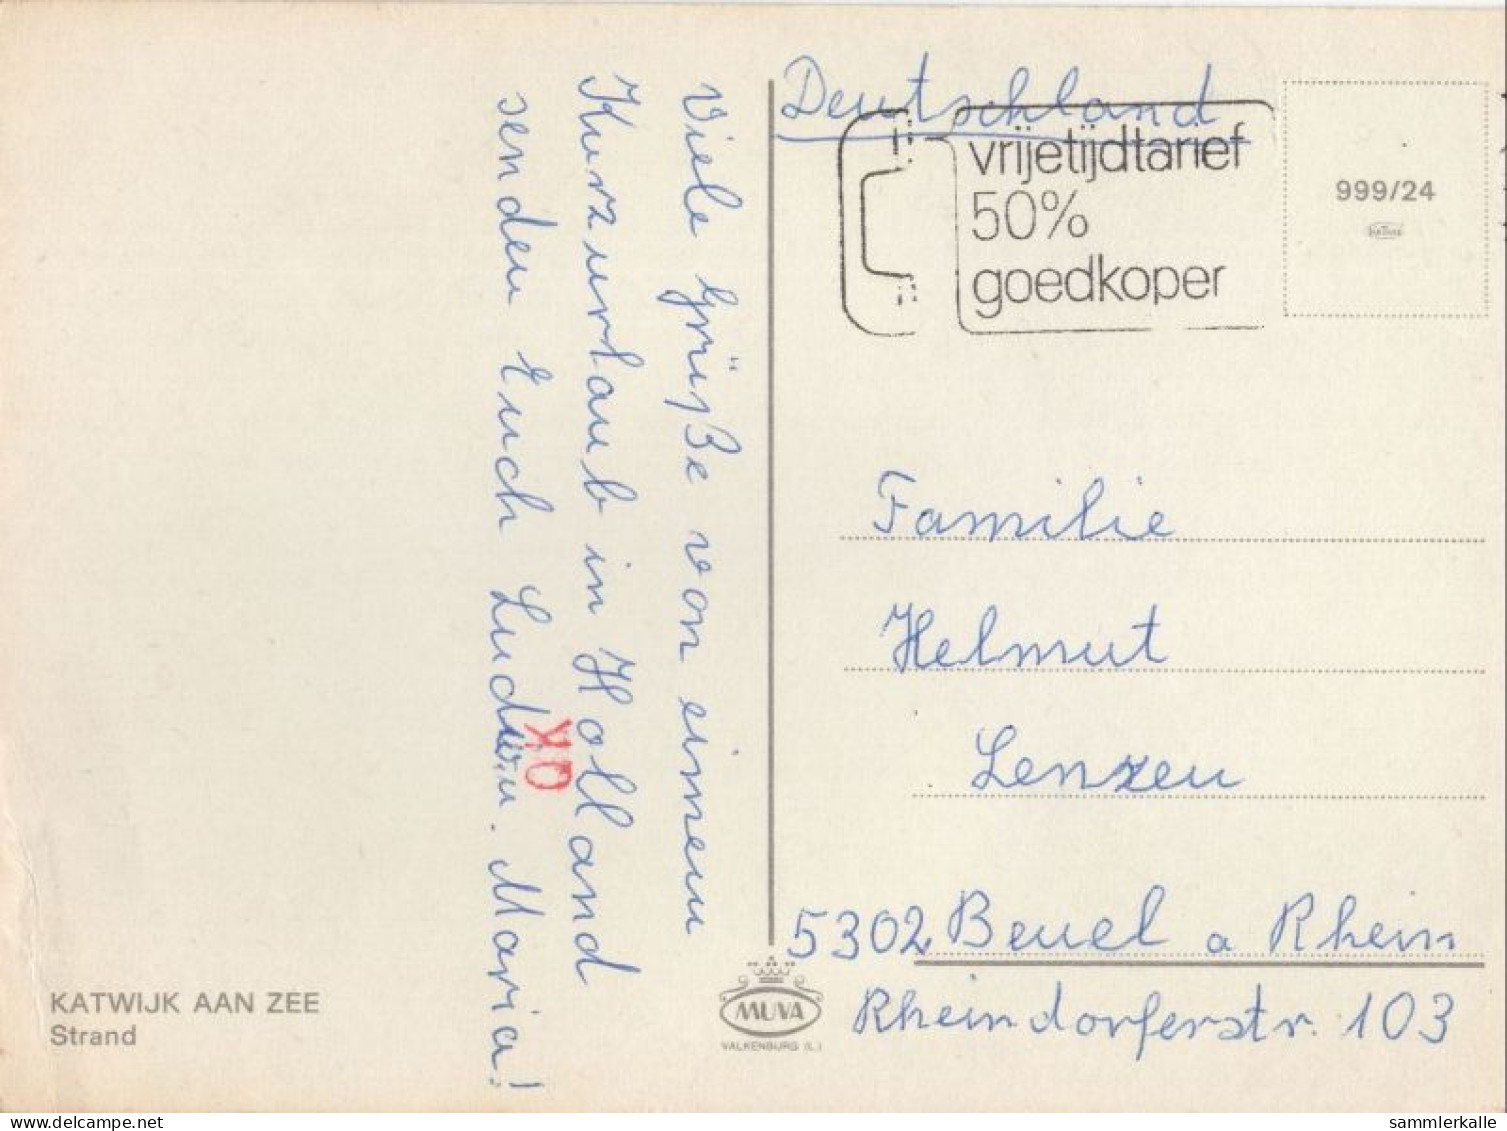 Deutschland
vrijetijdtarief
50%
goedkoper
999/24
Viele Grüße von einem
Kurzurlaub in Holland
senden Euch Ludwin. Maria!
OK
Familie
Helmut
Lenzen
5302 Beuel a Rhein
Rheindorferstr. 103
KATWIJK AAN ZEE
Strand
MUVA
VALKENBURG (L.)
delcampe.net
sammlerkalle